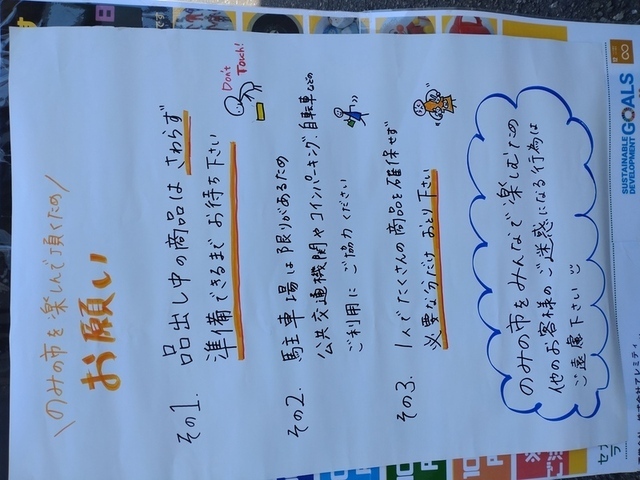 \のみの市を楽しんで頂くための/
お願い
その1. 品出し中の商品は さわらず
準備できるまで お待ち下さい
Don't Touch!
その2. 駐車場は限りがあるため
公共交通機関やコインパーキング、自転車などの
ご利用に ご協力ください
その3. 1人でたくさんの商品を確保せず
必要な分だけ おとり下さい
のみの市をみんなで楽しむため
他のお客様のご迷惑になる行為は
ご遠慮下さい
SUSTAINABLE
DEVELOPMENT
GOALS